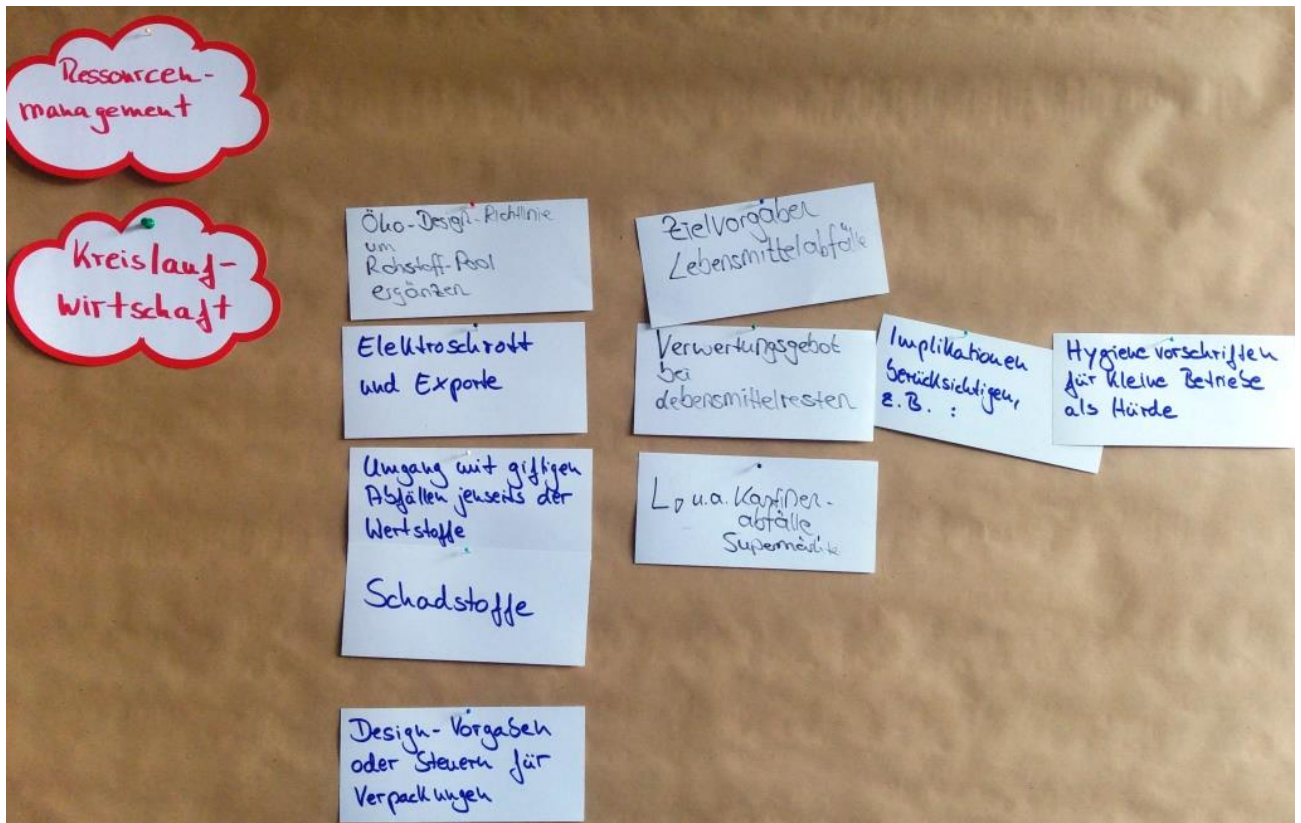 Ressourcen-
management
Kreislauf-
wirtschaft
Öko-Design-Richtlinie
um
Rohstoff-Pool
ergänzen
Elektroschrott
und Exporte
Umgang mit giftigen
Abfällen jenseits der
Wertstoffe
Schadstoffe
Design-Vorgaben
oder Steuern für
Verpackungen
Zielvorgaben
Lebensmittelabfälle
Verwertungsgebot
bei
Lebensmittelresten
u.a.
abfälle
Supermärkte
Implikationen
berücksichtigen,
z.B. :
Hygienevorschriften
für kleine Betriebe
als Hürde